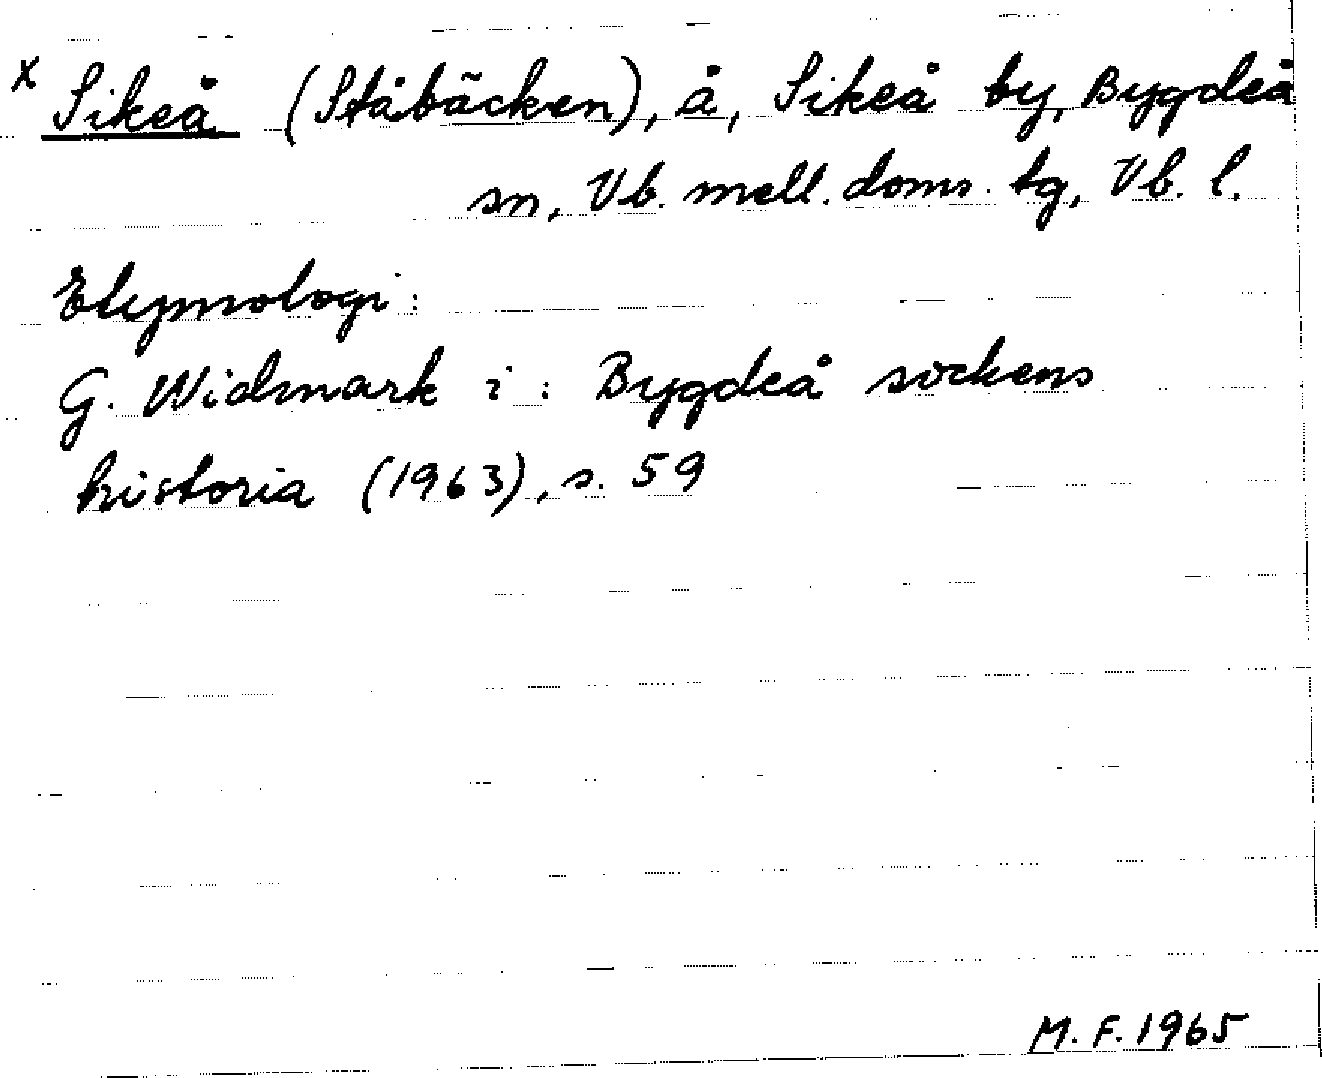 x Sikeå (Ståbäcken), å, Sikeå by, Bygdeå
sn, Vb. mell. doms. tg, Vb. l.
Etymologi:
G. Widmark i: Bygdeå sockens
historia (1963), s. 59
M.F. 1965